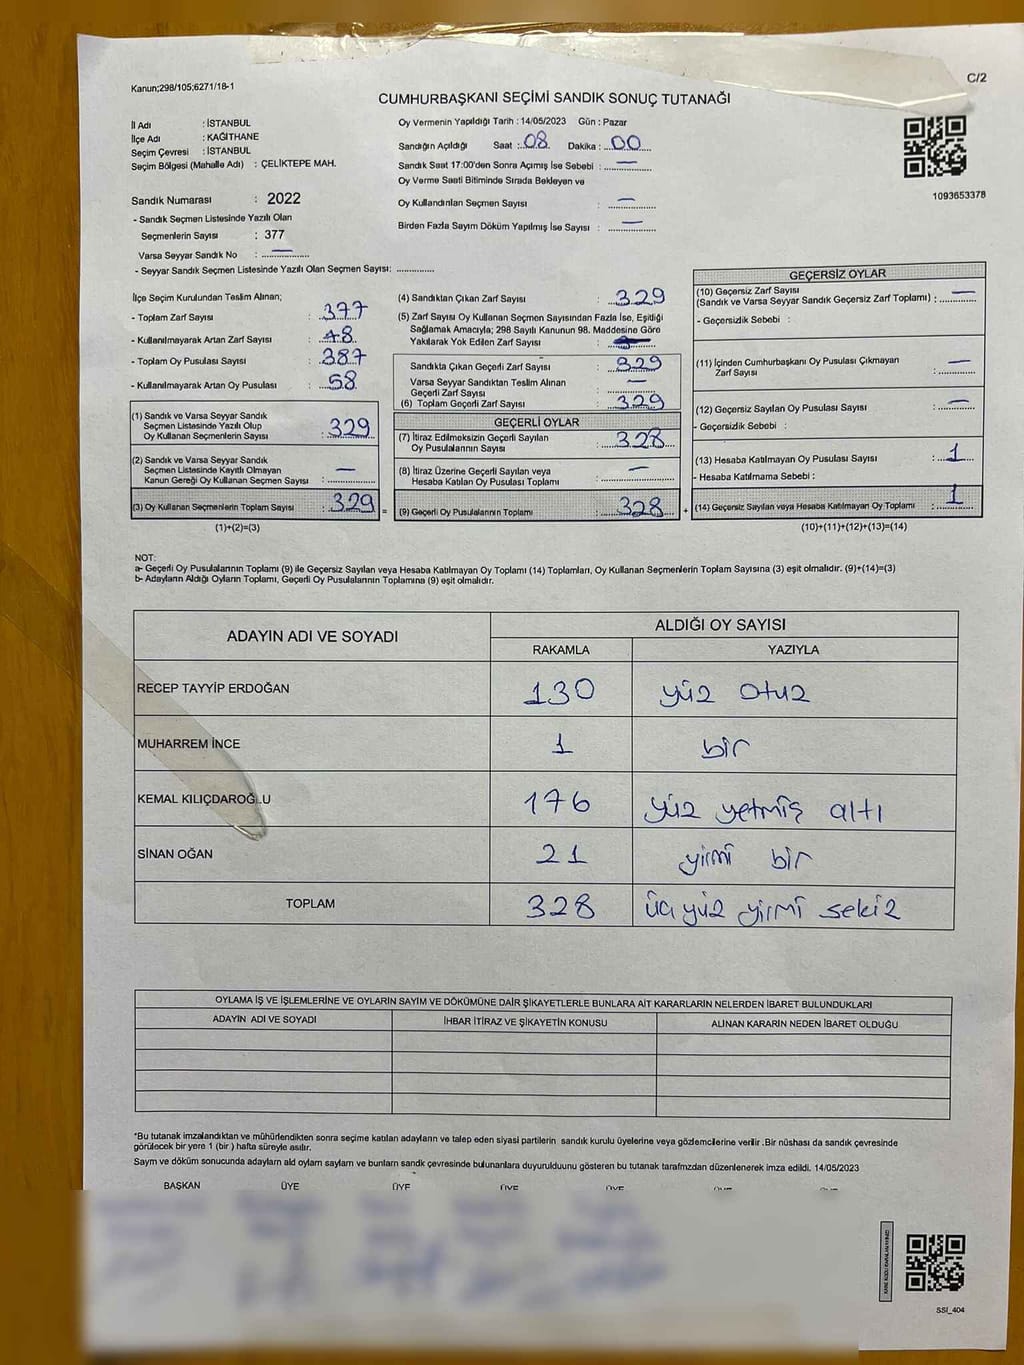 Kanun;298/105;6271/18-1
C/2
CUMHURBAŞKANI SEÇİMİ SANDIK SONUÇ TUTANAĞI
İl Adı : İSTANBUL
İlçe Adı : KAĞITHANE
Seçim Çevresi : İSTANBUL
Seçim Bölgesi (Mahalle Adı) : ÇELİKTEPE MAH.
Oy Vermenin Yapıldığı Tarih : 14/05/2023 Gün : Pazar
Sandığın Açıldığı Saat : 08 Dakika : 00
Sandık Saat 17:00'den Sonra Açımış İse Sebebi : —
Oy Verme Saati Bitiminde Sırada Bekleyen ve
Oy Kullandırılan Seçmen Sayısı : —
Birden Fazla Sayım Döküm Yapılmış İse Sayısı : —
1093653378
Sandık Numarası : 2022
- Sandık Seçmen Listesinde Yazılı Olan
Seçmenlerin Sayısı : 377
Varsa Seyyar Sandık No : —
- Seyyar Sandık Seçmen Listesinde Yazılı Olan Seçmen Sayısı: ..............
İlçe Seçim Kurulundan Teslim Alınan;
- Toplam Zarf Sayısı : 377
- Kullanılmayarak Artan Zarf Sayısı : 48
- Toplam Oy Pusulası Sayısı : 387
- Kullanılmayarak Artan Oy Pusulası : 58
(1) Sandık ve Varsa Seyyar Sandık
Seçmen Listesinde Yazılı Olup
Oy Kullanan Seçmenlerin Sayısı : 329
(2) Sandık ve Varsa Seyyar Sandık
Seçmen Listesinde Kayıtlı Olmayan
Kanun Gereği Oy Kullanan Seçmen Sayısı : —
(3) Oy Kullanan Seçmenlerin Toplam Sayısı : 329 =
(1)+(2)=(3)
(4) Sandıktan Çıkan Zarf Sayısı : 329
(5) Zarf Sayısı Oy Kullanan Seçmen Sayısından Fazla İse, Eşitliği
Sağlamak Amacıyla; 298 Sayılı Kanunun 98. Maddesine Göre
Yakılarak Yok Edilen Zarf Sayısı :
Sandıkta Çıkan Geçerli Zarf Sayısı : 329
Varsa Seyyar Sandıktan Teslim Alınan
Geçerli Zarf Sayısı : —
(6) Toplam Geçerli Zarf Sayısı : 329
GEÇERLİ OYLAR
(7) İtiraz Edilmeksizin Geçerli Sayılan
Oy Pusulalarının Sayısı : 328
(8) İtiraz Üzerine Geçerli Sayılan veya
Hesaba Katılan Oy Pusulası Toplamı : —
(9) Geçerli Oy Pusulalarının Toplamı : 328 +
GEÇERSİZ OYLAR
(10) Geçersiz Zarf Sayısı
(Sandık ve Varsa Seyyar Sandık Geçersiz Zarf Toplamı) : —
- Geçersizlik Sebebi :
(11) İçinden Cumhurbaşkanı Oy Pusulası Çıkmayan
Zarf Sayısı : —
(12) Geçersiz Sayılan Oy Pusulası Sayısı : —
- Geçersizlik Sebebi :
(13) Hesaba Katılmayan Oy Pusulası Sayısı : 1
- Hesaba Katılmama Sebebi :
(14) Geçersiz Sayılan veya Hesaba Katılmayan Oy Toplamı : 1
(10)+(11)+(12)+(13)=(14)
NOT:
a- Geçerli Oy Pusulalarının Toplamı (9) ile Geçersiz Sayılan veya Hesaba Katılmayan Oy Toplamı (14) Toplamları, Oy Kullanan Seçmenlerin Toplam Sayısına (3) eşit olmalıdır. (9)+(14)=(3)
b- Adayların Aldığı Oyların Toplamı, Geçerli Oy Pusulalarının Toplamına (9) eşit olmalıdır.
ADAYIN ADI VE SOYADI
ALDIĞI OY SAYISI
RAKAMLA YAZIYLA
RECEP TAYYİP ERDOĞAN 130 yüz otuz
MUHARREM İNCE 1 bir
KEMAL KILIÇDAROĞLU 176 yüz yetmiş altı
SİNAN OĞAN 21 yirmi bir
TOPLAM 328 üç yüz yirmi sekiz
OYLAMA İŞ VE İŞLEMLERİNE VE OYLARIN SAYIM VE DÖKÜMÜNE DAİR ŞİKAYETLERLE BUNLARA AİT KARARLARIN NELERDEN İBARET BULUNDUKLARI
ADAYIN ADI VE SOYADI İHBAR İTİRAZ VE ŞİKAYETİN KONUSU ALINAN KARARIN NEDEN İBARET OLDUĞU
*Bu tutanak imzalandıktan ve mühürlendikten sonra seçime katılan adayların ve talep eden siyasi partilerin sandık kurulu üyelerine veya gözlemcilerine verilir .Bir nüshası da sandık çevresinde
görülecek bir yere 1 (bir ) hafta süreyle asılır.
Sayım ve döküm sonucunda adayların ald oyların sayların ve bunların sandk çevresinde bulunanlara duyurulduunu gösteren bu tutanak tarafmzdan düzenlenerek imza edildi. 14/05/2023
BAŞKAN ÜYE ÜYE ÜYE ÜYE
SSI_404